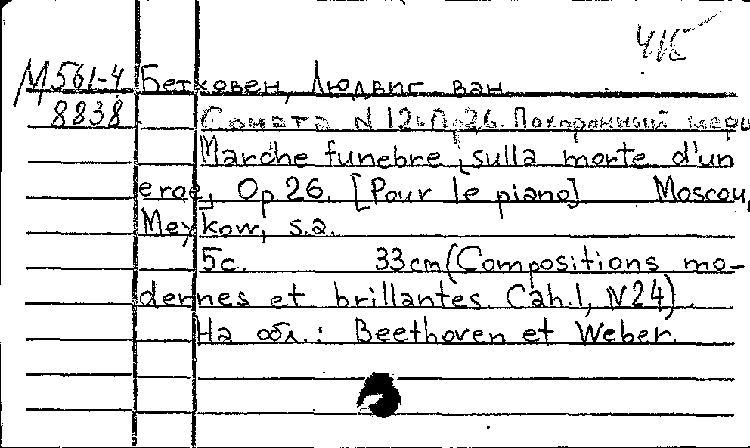 415
М 561-4 Бетховен, Людвиг ван
8838 Соната N 12. Op. 26. Похоронный марш
Marche funebre "sulla morte d'un
eroe", Op 26. [Pour le piano]. Moscou,
Meykow, s.a.
5c. 33cm (Compositions mo-
dernes et brillantes. Cah.1, N24).
На обл.: Beethoven et Weber.